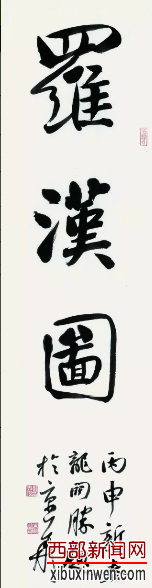 羅漢圖
丙申新春
龍開勝題
於京華
西部新闻网
xibuxinwen.com